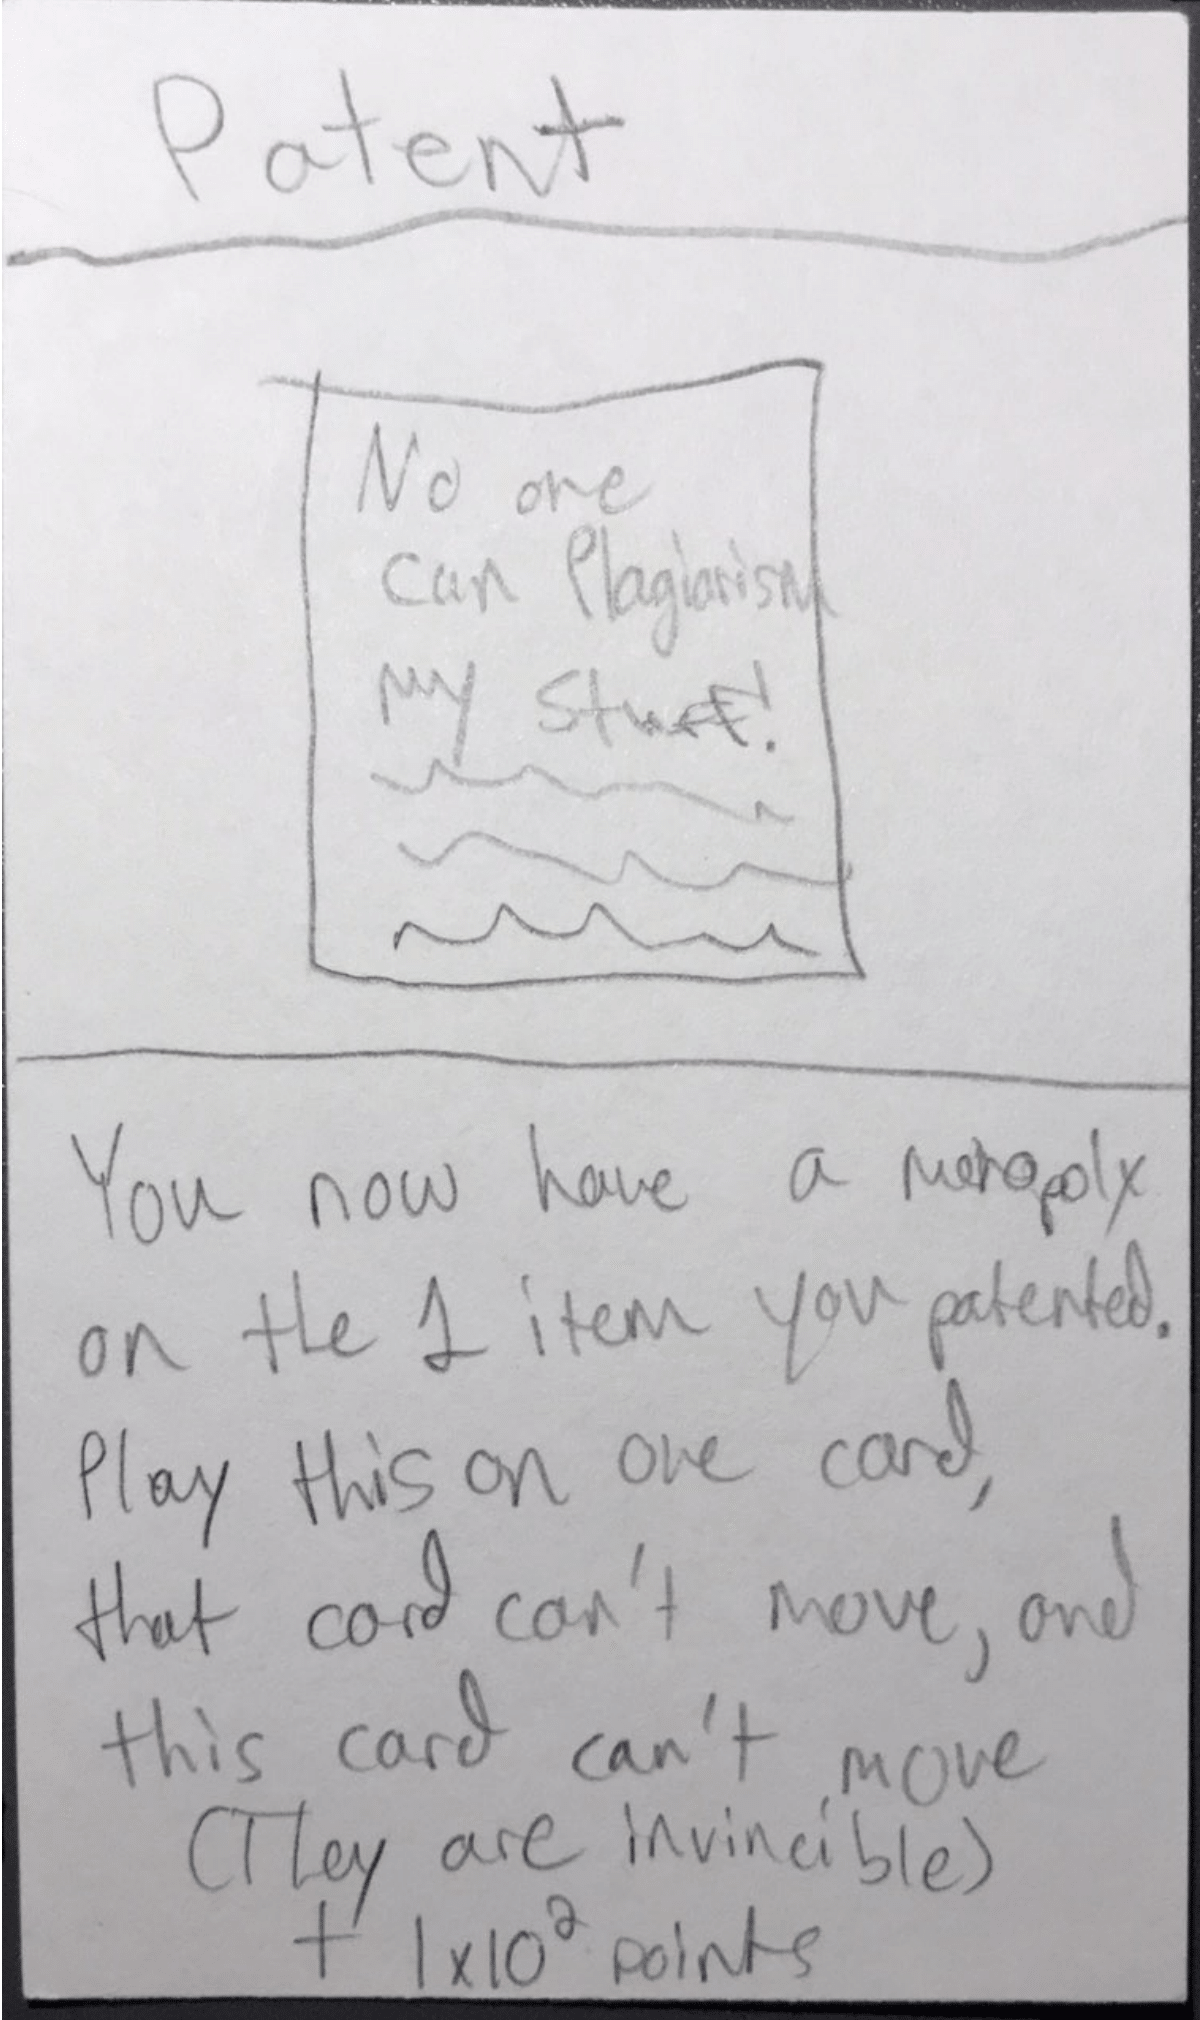 Patent
No one
can Plagiarism
my Stuff!
You now have a monopoly
on the 1 item you patented.
Play this on one card,
that card can't move, and
this card can't move
(They are invincible)
+ 1x10² points